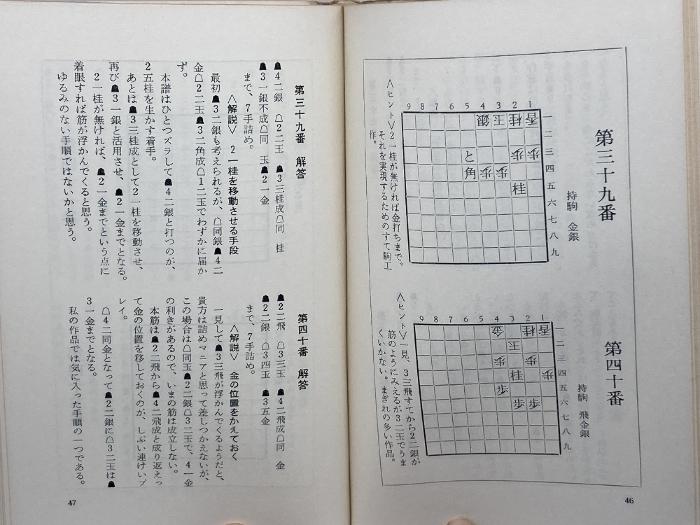 第三十九番
持駒 金銀
9 8 7 6 5 4 3 2 1
銀 玉 桂 香
歩 歩
と
角 歩 歩
桂
一二三四五六七八九
〈ヒント〉2一桂が無ければ金打ちまで。
それを実現するためのすて駒工
作。
第四十番
持駒 飛金銀
9 8 7 6 5 4 3 2 1
金 玉 桂 香
歩
桂 歩
歩
歩 歩
一二三四五六七八九
〈ヒント〉一見、3三飛すてから2二銀が
筋のようにみえるが3二玉でうま
くいかない。まぎれの多い作品。
46
第三十九番 解答
☗4二銀 ☖2二玉 ☗3三桂成☖同 桂
☗3一銀不成☖同 玉 ☗2一金
まで、7手詰め。
〈解説〉 2一桂を移動させる手段
最初☗3二銀も考えられるが、☖同銀☗4二
金☖2二玉☗3二角成☖1二玉でわずかに届か
ず。
本譜はひとつズラして☗4二銀と打つのが、
2五桂を生かす着手。
あとは☗3三桂成として2一桂を移動させ、
再び☗3一銀と活用させ、☗2一金までとなる。
2一桂が無ければ、☗2一金までという点に
着眼すれば筋が浮かんでくると思う。
ゆるみのない手順ではないかと思う。
第四十番 解答
☗2二飛 ☖3三玉 ☗4二飛成☖同 金
☗2二銀 ☖3四玉 ☗3五金
まで、7手詰め。
〈解説〉 金の位置をかえておく
一見して☗3三飛が浮かんでくるようだと、
貴方は詰めマニアと思って差しつかえないが、
この場合は☖同玉☗2二銀☖3二玉で、4一金
の利きがあるので、いまの筋は成立しない。
本筋は☗2二飛から☗4二飛成と成り返えっ
て金の位置を移しておくのが、しぶい連けいプ
レイ。
☖4二同金となって☗2二銀に☖3二玉は☗
3一金までとなる。
私の作品では気に入った手順の一つである。
47